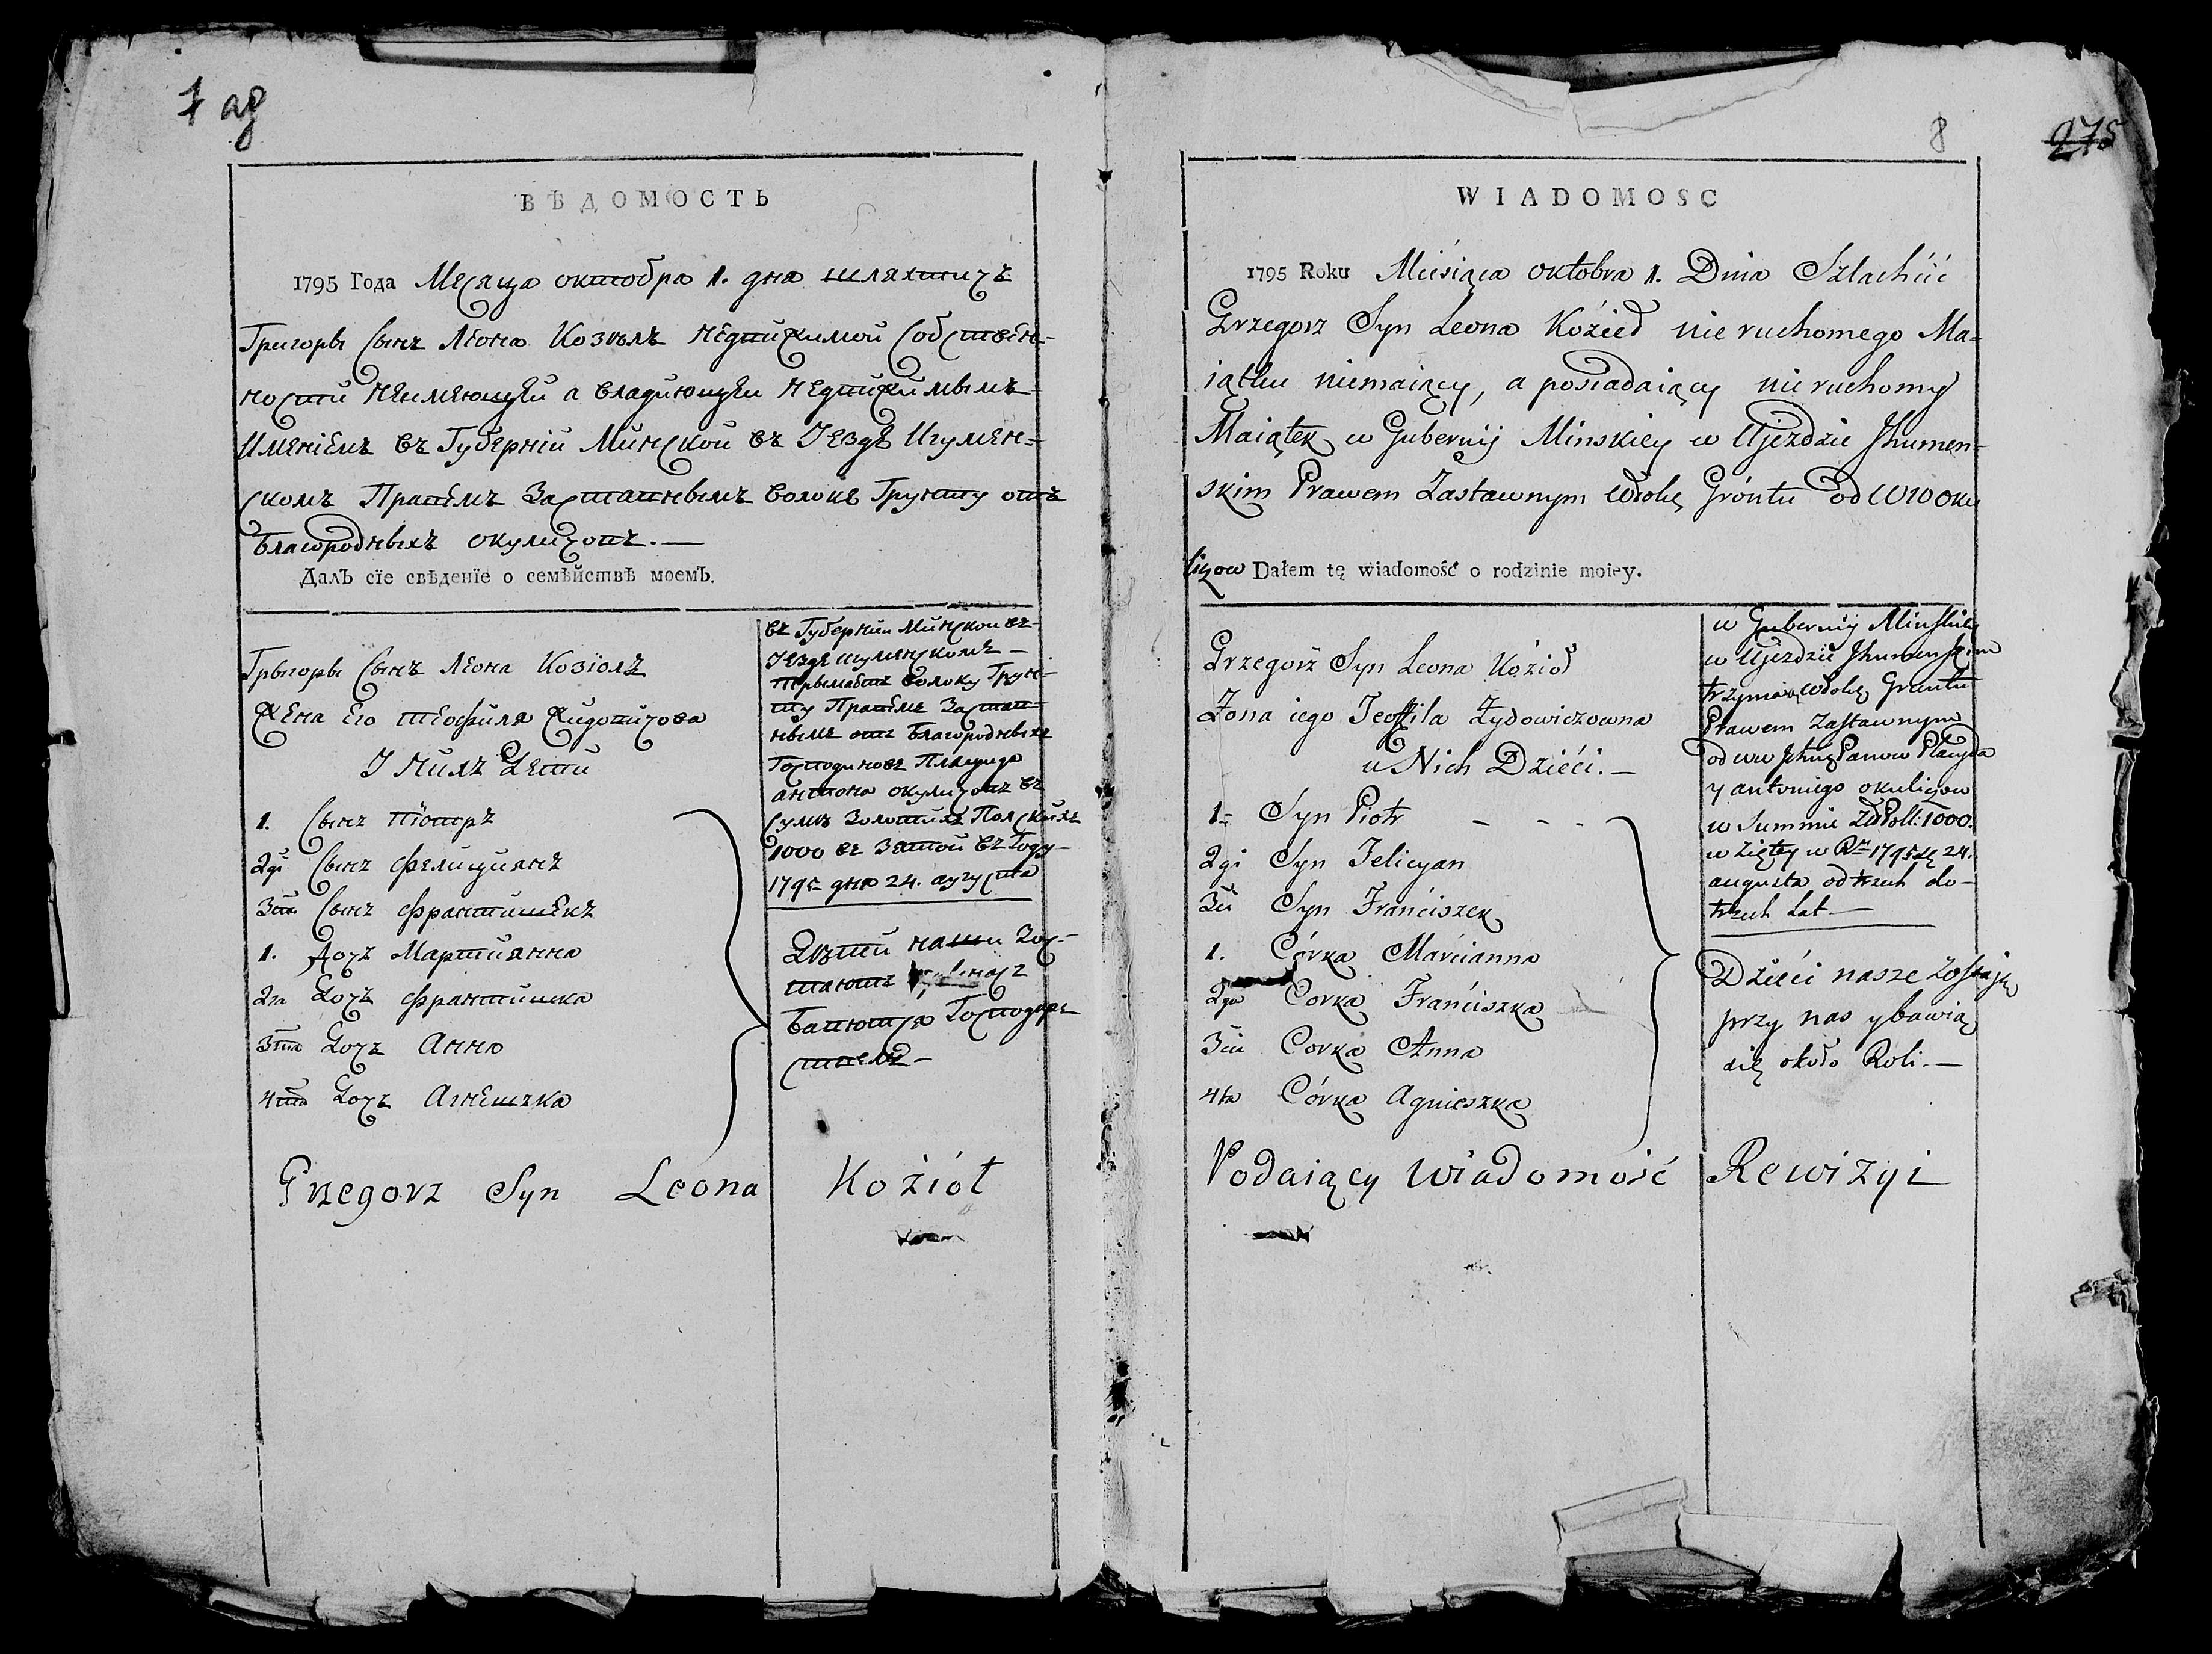 7 об
ВѢДОМОСТЬ
1795 Года Месяца октобра 1. дня шляхтичъ
Григоры Сынъ Леона Козьолъ недвижимой Собствен-
ности неимеющей а владующей недвижимымъ
Имениемъ въ Губерніи Минской въ Уезде Игумен-
скомъ Правемъ Заставнымъ Волоке Грунту отъ
Благородныхъ окуличовъ. —
ДалЪ сїе свѣденїе о семѣйствѣ моемЪ.
Грыгоры Сынъ Леона Козіолъ
Жена Его Теофиля Жидовичова
У Нихъ Дети
1. Сынъ Піотръ
2gi Сынъ Фелицианъ
3ій Сынъ Франтишекъ
1. Дочъ Мартианна
2га Дочъ Франтишка
3та Дочъ Анна
4та Дочъ Агнешка
въ Губернии Минской въ
Уезде игуменскомъ —
Трымаетъ Волоку Грун-
ту Правемъ Застав-
нымъ отъ Благородныхъ
Господиновъ Плацида
антона окуличовъ въ
Сумъ Золотихъ Полскихъ
1000 въ Зятой въ Году —
1795 дня 24. аугуста
Дѣти наши Зос-
таютъ
Бавются Господар-
ствемъ —
Grzegorz Syn Leona Kozioł
8
275
WIADOMOSC
1795 Roku Miesiąca oktobra 1. Dnia Szlachcic
Grzegorz Syn Leona Kozieł nie ruchomego Ma=
iątku niemaiący, a posiadaiący nie ruchomy
Maiątek w Gubernij Minskiey w Ujezdzie Jhumen-
skim Prawem Zastawnym Włokę Gróntu od WW Oku
liczow Dałem tę wiadomość o rodzinie moiey.
Grzegorz Syn Leona Kozioł
Zona iego Teoffila Zydowiczowna
u Nich Dzieci. —
1= Syn Piotr - - -
2gi Syn Felicyan
3ci Syn Franciszek
1. Córka Marcianna
2ga Corka Franciszka
3cia Corka Anna
4ta Córka Agnieszka
w Gubernij Minskiey
w Ujezdzie Jhumenskim
trzymaią Włokę Gruntu
Prawem Zastawnym
od WW Panow Placyda
y antoniego okuliczow
w Summie Zł Poll: 1000.
w Ziętey w Rku 1795 24.
augusta od trzech do —
trzech Lat —
Dzieci nasze zostaią
przy nas y bawią
się około Roli. —
Podaiący Wiadomość Rewizyi